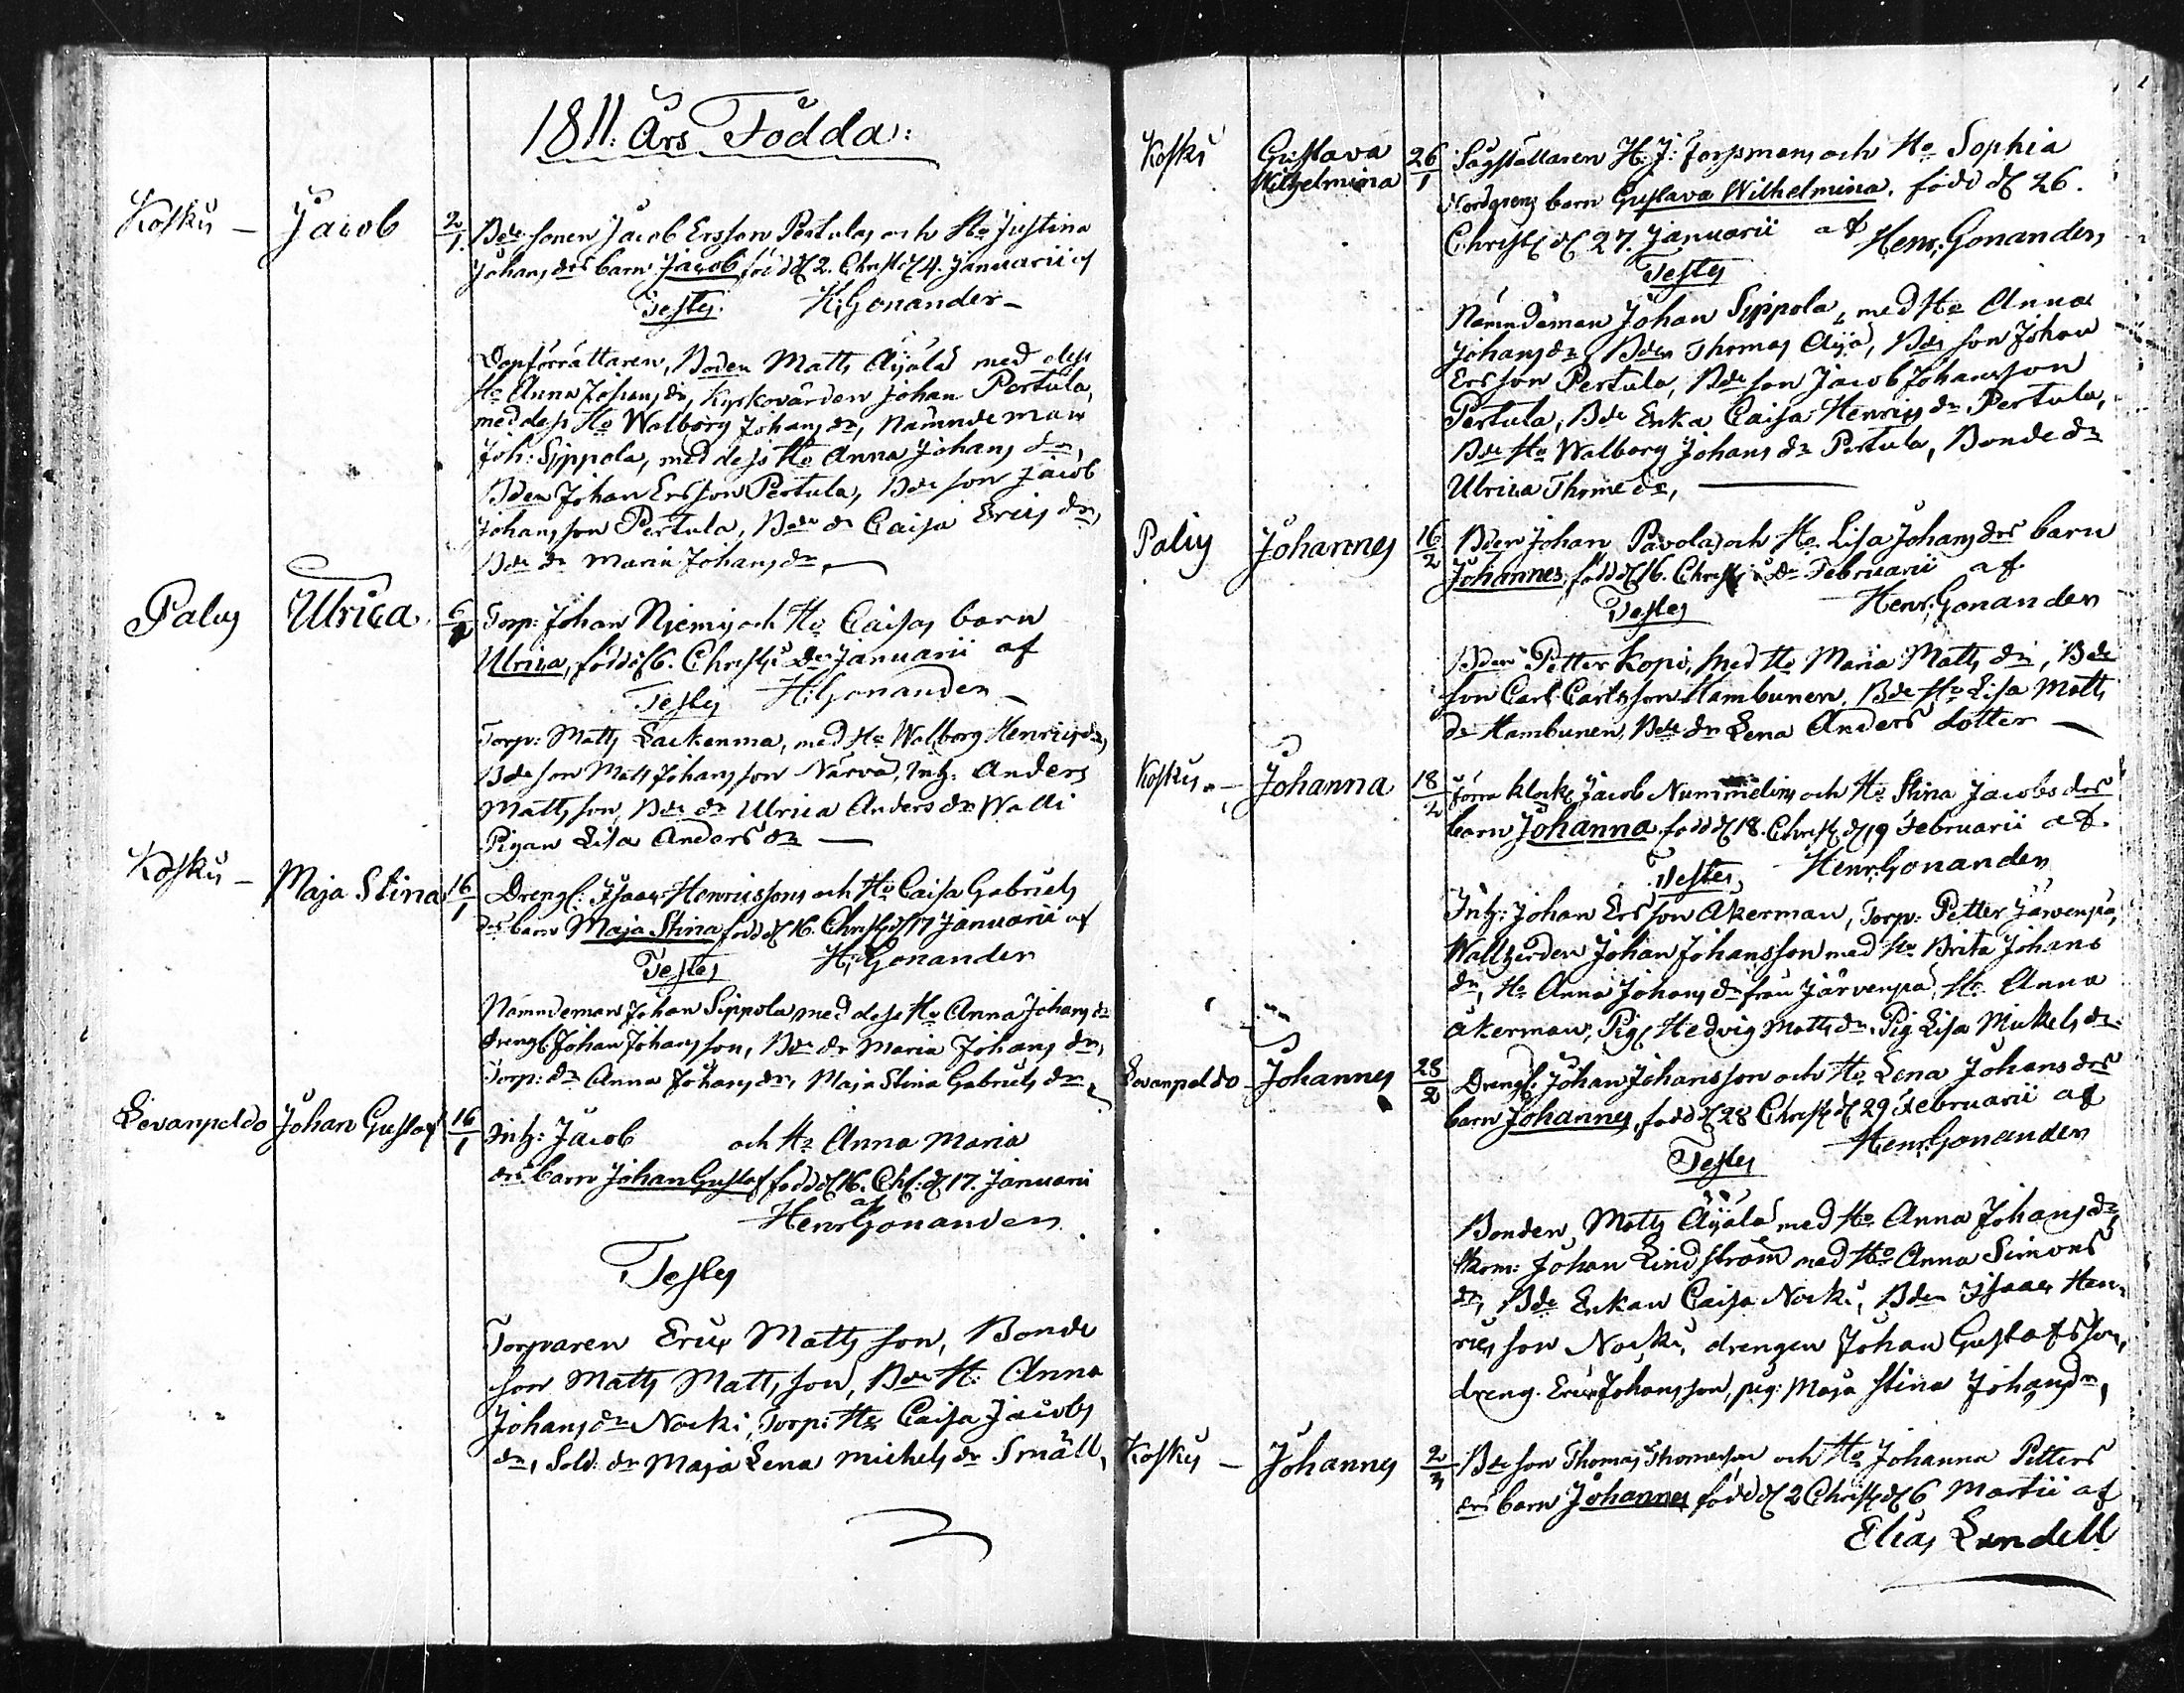 1811. Års Födda:
Koskis – Jacob 2/1 Bde sonen Jacob Ersson Pertulas och Ho Justina
Johans drs barn Jacob född d 2. Christ d 4. Januarii af
Testes. H: Gonander –
Dopförrättaren, Bonden Matts Äijälä med dess
Ho Anna Johans dr, Kyrkovärden Johan Pertula,
med dess Ho Walborg Johans dr, Nämndeman
Joh: Sippola, med dess Ho Anna Johans dr,
Bden Johan Ersson Pertula, Bde son Jacob
Johansson Pertula, Bde dr Caisa Erics dr,
Bde dr Maria Johans dr,
Palus Ulrica Torp: Johan Niemis och Ho Caisas barn
Ulrica, född d 6. Christ Januarii af
Testes H: Gonander –
Torp: Matts Laikenma, med Ho Walborg Henrics dr,
Bde son Matts Johansson Närvä, Inh: Anders
Mattsson, Bde dr Ulrica Anders dr Walli
Pigan Lisa Anders dr —
Koskis – Maja Stina 16/1 Drengs: Isaac Henricssons och Ho Caisa Gabriels
drs barn Maja Stina född d 16. Christ d 17 Januarii af
Testes H: Gonander
Nämndeman Johan Sippola med dess Ho Anna Johans dr
drengs Johan Johansson, Bde dr Maria Johans dr,
Torp: dr Anna Johans dr, Maja Stina Gabriels dr,
Levanpeldo Johan Gustaf 16/1 Inh: Jacob och Ho Anna Maria
drs barn Johan Gustaf född d 16. Chr: d 17. Januarii
af
Henr: Gonander
Testes
Torparen Eric Mattsson, Bonde
son Matts Mattsson, Bde H: Anna
Johans dr Nocki, Torp: Ho Caisa Jacobs
dr, Sold: dr Maja Lena Michels dr Smäll,
Koski Gustava Wilhelmina 26/1 Sågställaren H: J: Forssmans och Ho Sophia
Nordgrens barn Gustava Wilhelmina, född d 26.
Christ d 27. Januarii af Henr: Gonander,
Testes
Nämndeman Johan Sippola, med Ho Anna
Johans dr, Bden Thomas Äijä, Bde son Johan
Ersson Pertula, Bde son Jacob Johansson
Pertula, Bde Enka Caisa Henrics dr Pertula,
Bde Ho Walborg Johans dr Pertula, Bonde dr
Ulrica Thome dr, —
Palus Johannes 16/2 Bden Johan Pavolas och Ho Lisa Johans drs barn
Johannes, född d 16. Christ Februarii af
Testes Henr: Gonander
Bden Petter Kopi, med Ho Maria Matts dr, Bde
son Carl Carlsson Hambunen, Bde Ho Lisa Matts
dr Hambunen, Bde dr Lena Anders dotter —
Koskis – Johanna 18/2 Förra klock: Jacob Nummelins och Ho Stina Jacobs drs
barn Johanna född d 18. Christ d 19 Februarii af
Testes Henr: Gonander
Inh: Johan Ersson Åkerman, Torp: Petter Järvenpä,
Johan Johansson med Ho Brita Johans
dr, Ho Anna Johans dr från Järvenpä, Ho Anna
Åkerman, Pig: Hedvig Matts dr, Pig Lisa Mickels dr
Levanpeldo – Johannes 28/2 Drengs: Johan Johansson och Ho Lena Johans drs
barn Johannes, född d 28 Christ d 29 Februarii af
Testes Henr: Gonander
Bonden, Matts Äijälä med Ho Anna Johans dr,
Johan Lindström med Ho Anna Simons
dr, Bde Enkan Caisa Nocki, Bden Isaac Hen-
rics son Nocki, drengen Johan Gustafsson,
dreng. Eric Johansson, pig: Maja Stina Johans dr,
Koskis – Johannes 2/3 Bde son Thomas Thomasson och Ho Johanna Petters
drs barn Johannes född d 2 Christ d 6 Martii af
Elias Lundell